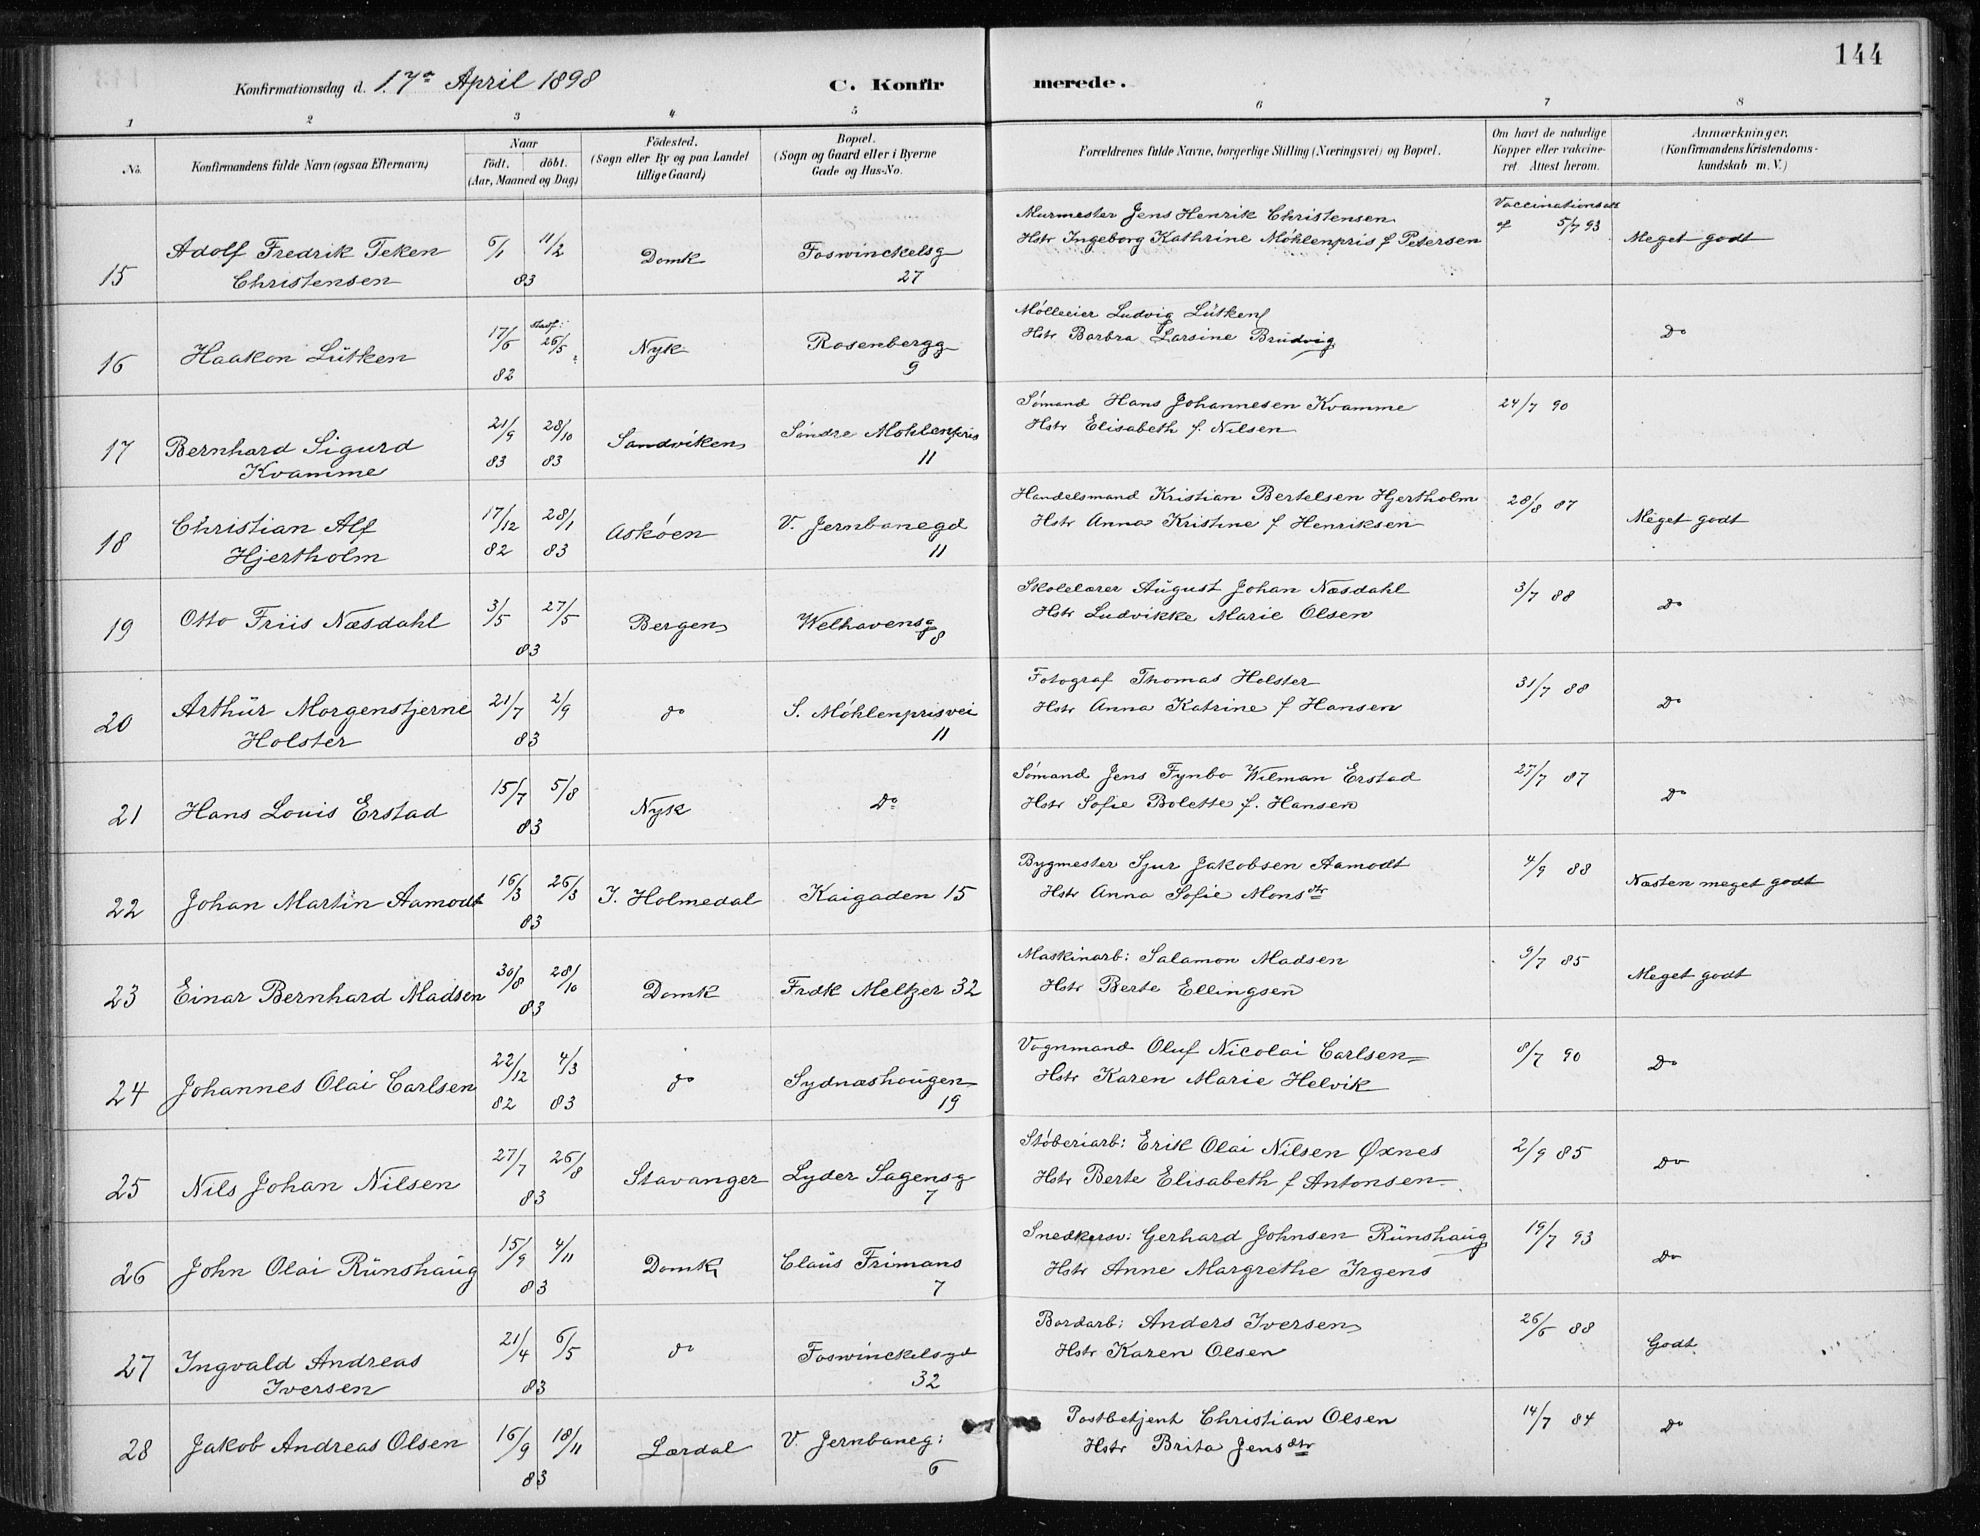 144
Konfirmationsdag d. 17de April 1898 C. Konfir merede.
1 2 3 4 5 6 7 8
No. Konfirmandens fulde Navn (ogsaa Efternavn) Naar födt. döbt. (Aar, Maaned og Dag) Födested. (Sogn eller By og paa Landet tillige Gaard) Bopæl. (Sogn og Gaard eller i Byerne Gade og Hus-No. Forældrenes fulde Navne, borgerlige Stilling (Næringsvei) og Bopæl. Om havt de naturlige Kopper eller vakcineret. Attest herom. Anmærkninger. (Konfirmandens Kristendomskundskab m. V.)
15 Adolf Fredrik Teken 6/1 11/2 Domk Foswinckelsg Murmester Jens Henrik Christensen Vaccinationsatt
Christensen 83 27 Hstr Ingeborg Kathrine Möhlenpris f Petersen af 5/7 93 Meget godt
16 Haakon Lütken 17/5 26/5 Nyk Rosenbergg Mölleeier Ludvig Lütken Do
82 9 Hstr Barbra Larsine Brudvig
17 Bernhard Sigurd 21/9 28/10 Sandviken Söndre Möhlenpris Sömand Hans Johannesen Kvamme 24/7 90
Kvamme 83 83 11 Hstr Elisabeth f. Nilsen
18 Christian Alf 17/12 28/1 Asköen V. Jernbanegd Handelsmand Kristian Bertelsen Hjertholm 28/8 87 Meget godt
Hjertholm 82 83 11 Hstr Anna Kristine f Henriksen
19 Otto Friis Næsdahl 3/5 27/5 Bergen Welhavensg Skolelærer August Johan Næsdahl 3/7 88 Do
83 8 Hstr Ludvikke Marie Olsen
20 Arthur Morgenstjerne 21/7 2/9 do S. Möhlenprisvei Fotograf Thomas Holster 31/7 88 Do
Holster 83 11 Hstr Anna Katrine f Hansen
21 Hans Louis Erstad 15/7 5/8 Nyk Do Sömand Jens Fynbo Wilman Erstad 27/7 87 Do
83 Hstr Sofie Bolette f. Hansen
22 Johan Martin Aamodt 16/3 26/3 I. Holmedal Kaigaden 15 Bygmester Sjur Jakobsen Aamodt 4/9 88 Næsten meget godt
83 Hstr Anna Sofie Monsdtr
23 Einar Bernhard Madsen 30/8 28/10 Domk Frdk Meltzer 32 Maskinarb: Salamon Madsen 9/7 85 Meget godt
83 Hstr Berte Ellingsen
24 Johannes Olai Carlsen 22/12 4/3 do Sydnæshougen Vognmand Oluf Nicolai Carlsen 8/7 90 Do
82 83 19 Hstr Karen Marie Helvik
25 Nils Johan Nilsen 27/7 26/8 Stavanger Lyder Sagensg Stöberiarb: Erik Olai Nilsen Øxnes 2/9 85 Do
83 7 Hstr Berte Elisabeth f Antonsen
26 John Olai Rünshaug 15/9 4/11 Domk Claus Frimans Snedkersv: Gerhard Johnsen Rünshaug 19/7 93 Do
83 7 Hstr Anne Margrethe Irgens
27 Ingvald Andreas 21/4 6/5 do Foswinckelsgd Bordarb: Anders Iversen 26/6 88 Godt
Iversen 83 32 Hstr Karen Olsen
28 Jakob Andreas Olsen 16/9 18/11 Lærdal V. Jernbaneg: Postbetjent Christian Olsen 14/7 84 Do
83 6 Hstr Brita Jensdtr